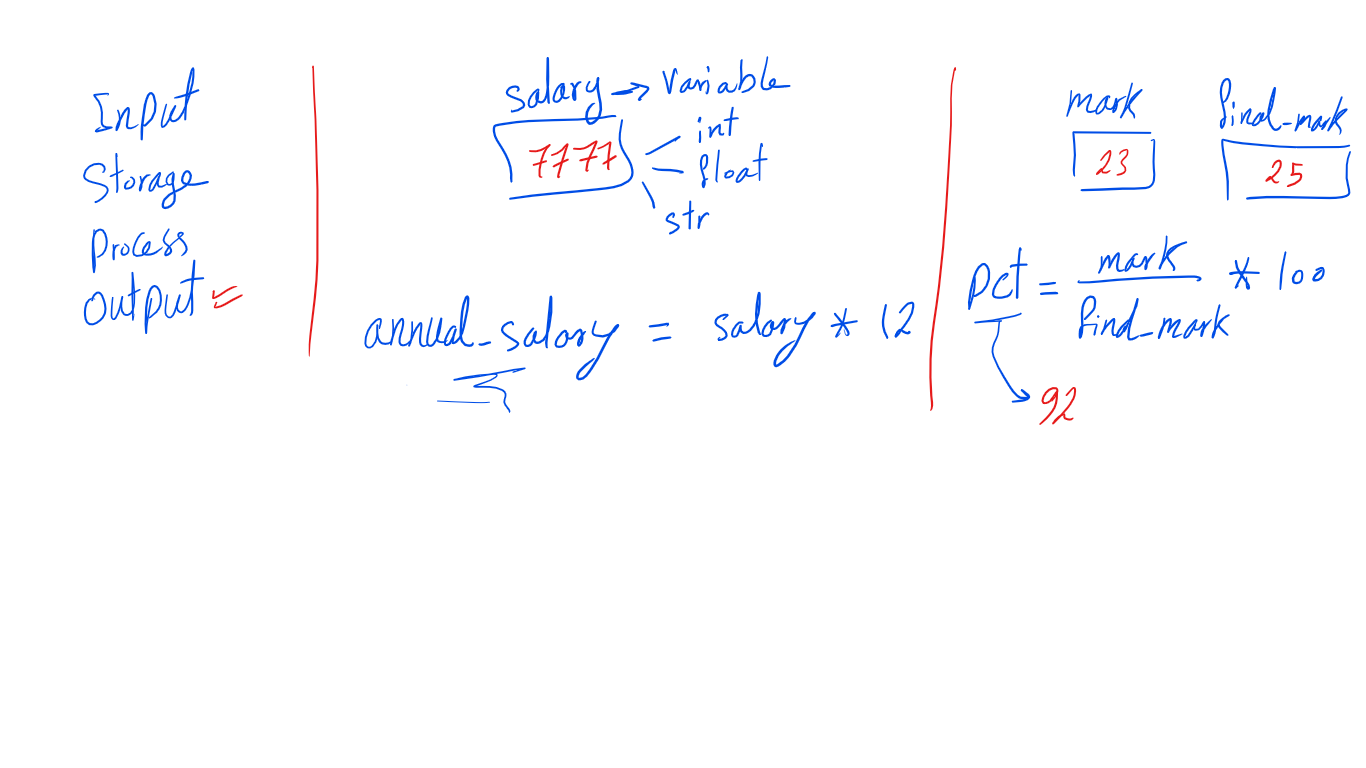 Input
Storage
Process
Output
salary → variable
7777
int
float
str
annual_salary = salary * 12
mark
final_mark
23
25
pct = mark / final_mark * 100
92